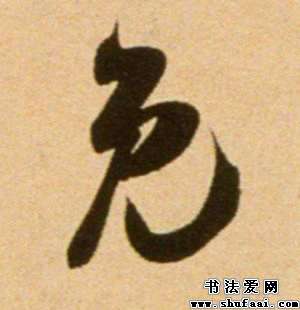 免
书法爱网
www.shufaai.com